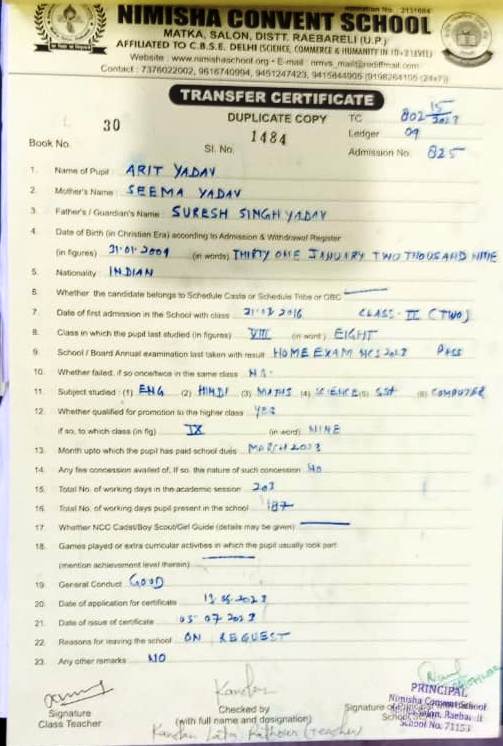 Affiliation No.: 2131684
NIMISHA CONVENT SCHOOL
MATKA, SALON, DISTT. RAEBARELI (U.P.)
AFFILIATED TO C.B.S.E. DELHI (SCIENCE, COMMERCE & HUMANITY IN 10+2 LEVEL)
Website : www.nimishaschool.org • E-mail : nmvs_mail@rediffmail.com
Contact : 7376022002, 9616740994, 9451247423, 9415844905 (24x7)
TRANSFER CERTIFICATE
Book No. 30 DUPLICATE COPY TC 802 15/2023
Ledger 09
Sl. No. 1484 Admission No. 825
1. Name of Pupil : ARIT YADAV
2. Mother's Name : SEEMA YADAV
3. Father's / Guardian's Name : SURESH SINGH YADAV
4. Date of Birth (in Christian Era) according to Admission & Withdrawl Register
(in figures) 31-01-2009 (in words) THIRTY ONE JANUARY TWO THOUSAND NINE
5. Nationality : INDIAN
6. Whether the candidate belongs to Schedule Caste or Schedule Tribe or OBC
7. Date of first admission in the School with class 2016 CLASS - II (TWO)
8. Class in which the pupil last studied (in figures) VIII (in word) EIGHT
9. School / Board Annual examination last taken with result HOME EXAM NCS 2023 PASS
10. Whether failed, if so once/twice in the same class NO
11. Subject studied : (1) ENG (2) HINDI (3) MATHS (4) SCIENCE (5) SST (6) COMPUTER
12. Whether qualified for promotion to the higher class YES
if so, to which class (in fig) IX (in word) NINE
13. Month upto which the pupil has paid school dues MARCH 2023
14. Any fee concession availed of, If so, the nature of such concession NO
15. Total No. of working days in the academic session 203
16. Total No. of working days pupil present in the school 187
17. Whether NCC Cadet/Boy Scout/Girl Guide (details may be given)
18. Games played or extra curricular activities in which the pupil usually took part
(mention achievement level therein)
19. General Conduct GOOD
20. Date of application for certificate 2023
21. Date of issue of certificate 05-07-2023
22. Reasons for leaving the school ON REQUEST
23. Any other remarks NO
Signature
Class Teacher
Checked by
(with full name and designation)
Kanchan Lata Rathour (Teacher)
Signature of Principal
School Seal
PRINCIPAL
Nimisha Convent School
Salon, Raebareli
School No. 71153